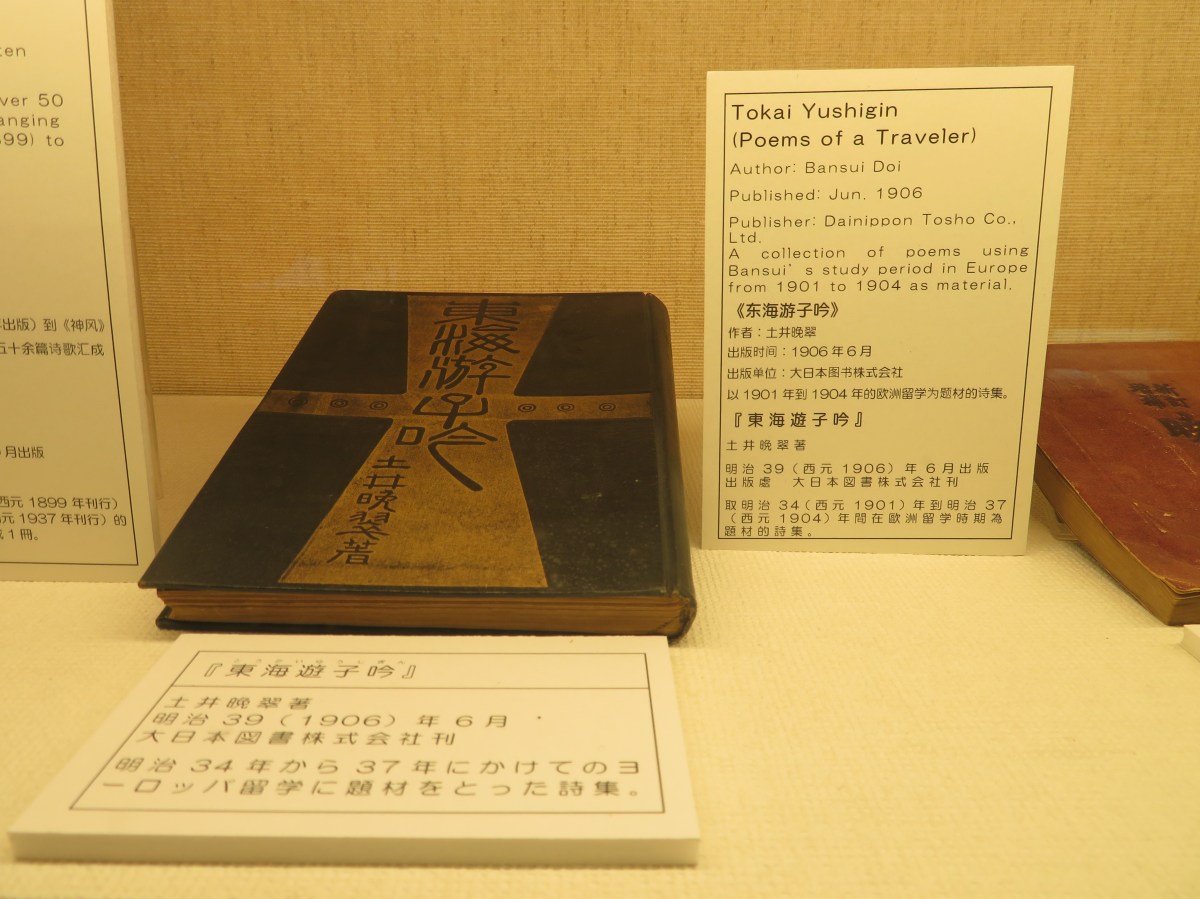 ver 50
anging
99) to
出版）到《神风》
五十余篇诗歌汇成
月出版
西元 1899 年刊行）
元 1937 年刊行）的
1 冊。
東海游子吟
土井晩翠著
Tokai Yushigin
(Poems of a Traveler)
Author: Bansui Doi
Published: Jun. 1906
Publisher: Dainippon Tosho Co.,
Ltd.
A collection of poems using
Bansui’s study period in Europe
from 1901 to 1904 as material.
《东海游子吟》
作者：土井晚翠
出版时间：1906 年 6 月
出版单位：大日本图书株式会社
以 1901 年到 1904 年的欧洲留学为题材的诗集。
『東海遊子吟』
土井晩翠著
明治 39（西元 1906）年 6 月出版
出版處　大日本図書株式会社刊
取明治 34（西元 1901）年到明治 37
（西元 1904）年間在欧洲留学時期為
題材的詩集。
『東海遊子吟』
土井晩翠著
明治 39（1906）年 6 月
大日本図書株式会社刊
明治 34 年から 37 年にかけてのヨ
ーロッパ留学に題材をとった詩集。